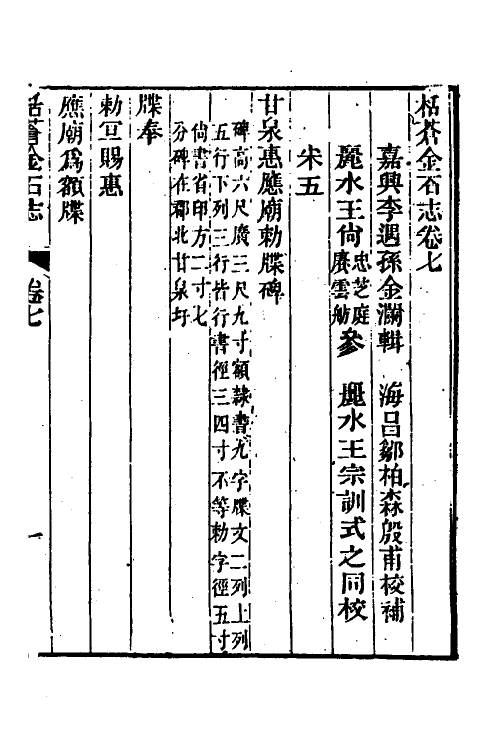 栝蒼金石志卷七
嘉興李遇孫金瀾輯　海昌鄒柏森殷甫校補
麗水王尙忠芝庭賡雲舫參　麗水王宗訓式之同校
宋五
甘泉惠應廟勅牒碑
碑高六尺廣三尺九寸額隸書九字牒文二列上列
五行下列三行皆行書徑三四寸不等勅字徑五寸
尙書省印方二寸七
分碑在郡北甘泉圩
牒奉
勅冝賜惠
應廟爲額牒
栝蒼金石志
卷七
一